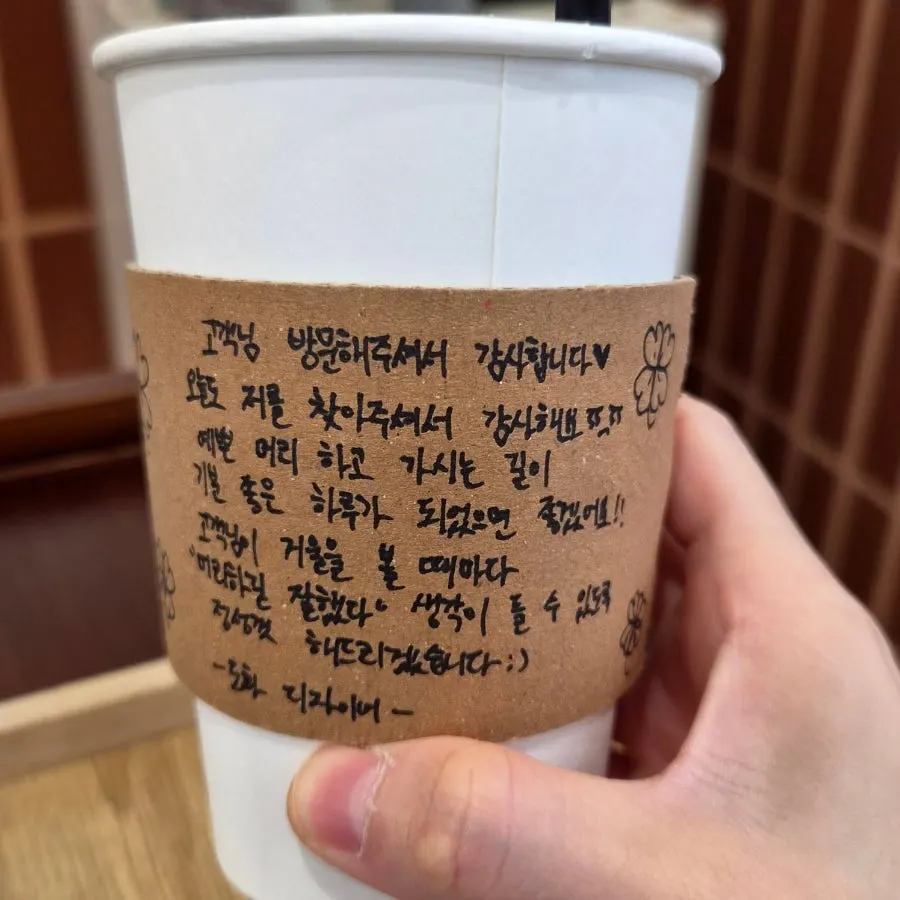 고객님 방문해주셔서 감사합니다♥
오늘도 저를 찾아주셔서 감사해요ㅠ.ㅠ
예쁜 머리 하고 가시는 길이
기분 좋은 하루가 되었으면 좋겠어요!!
고객님이 거울을 볼 때마다
"머리하길 잘했다" 생각이 들 수 있도록
정성껏 해드리겠습니다:)
-도화 디자이너-